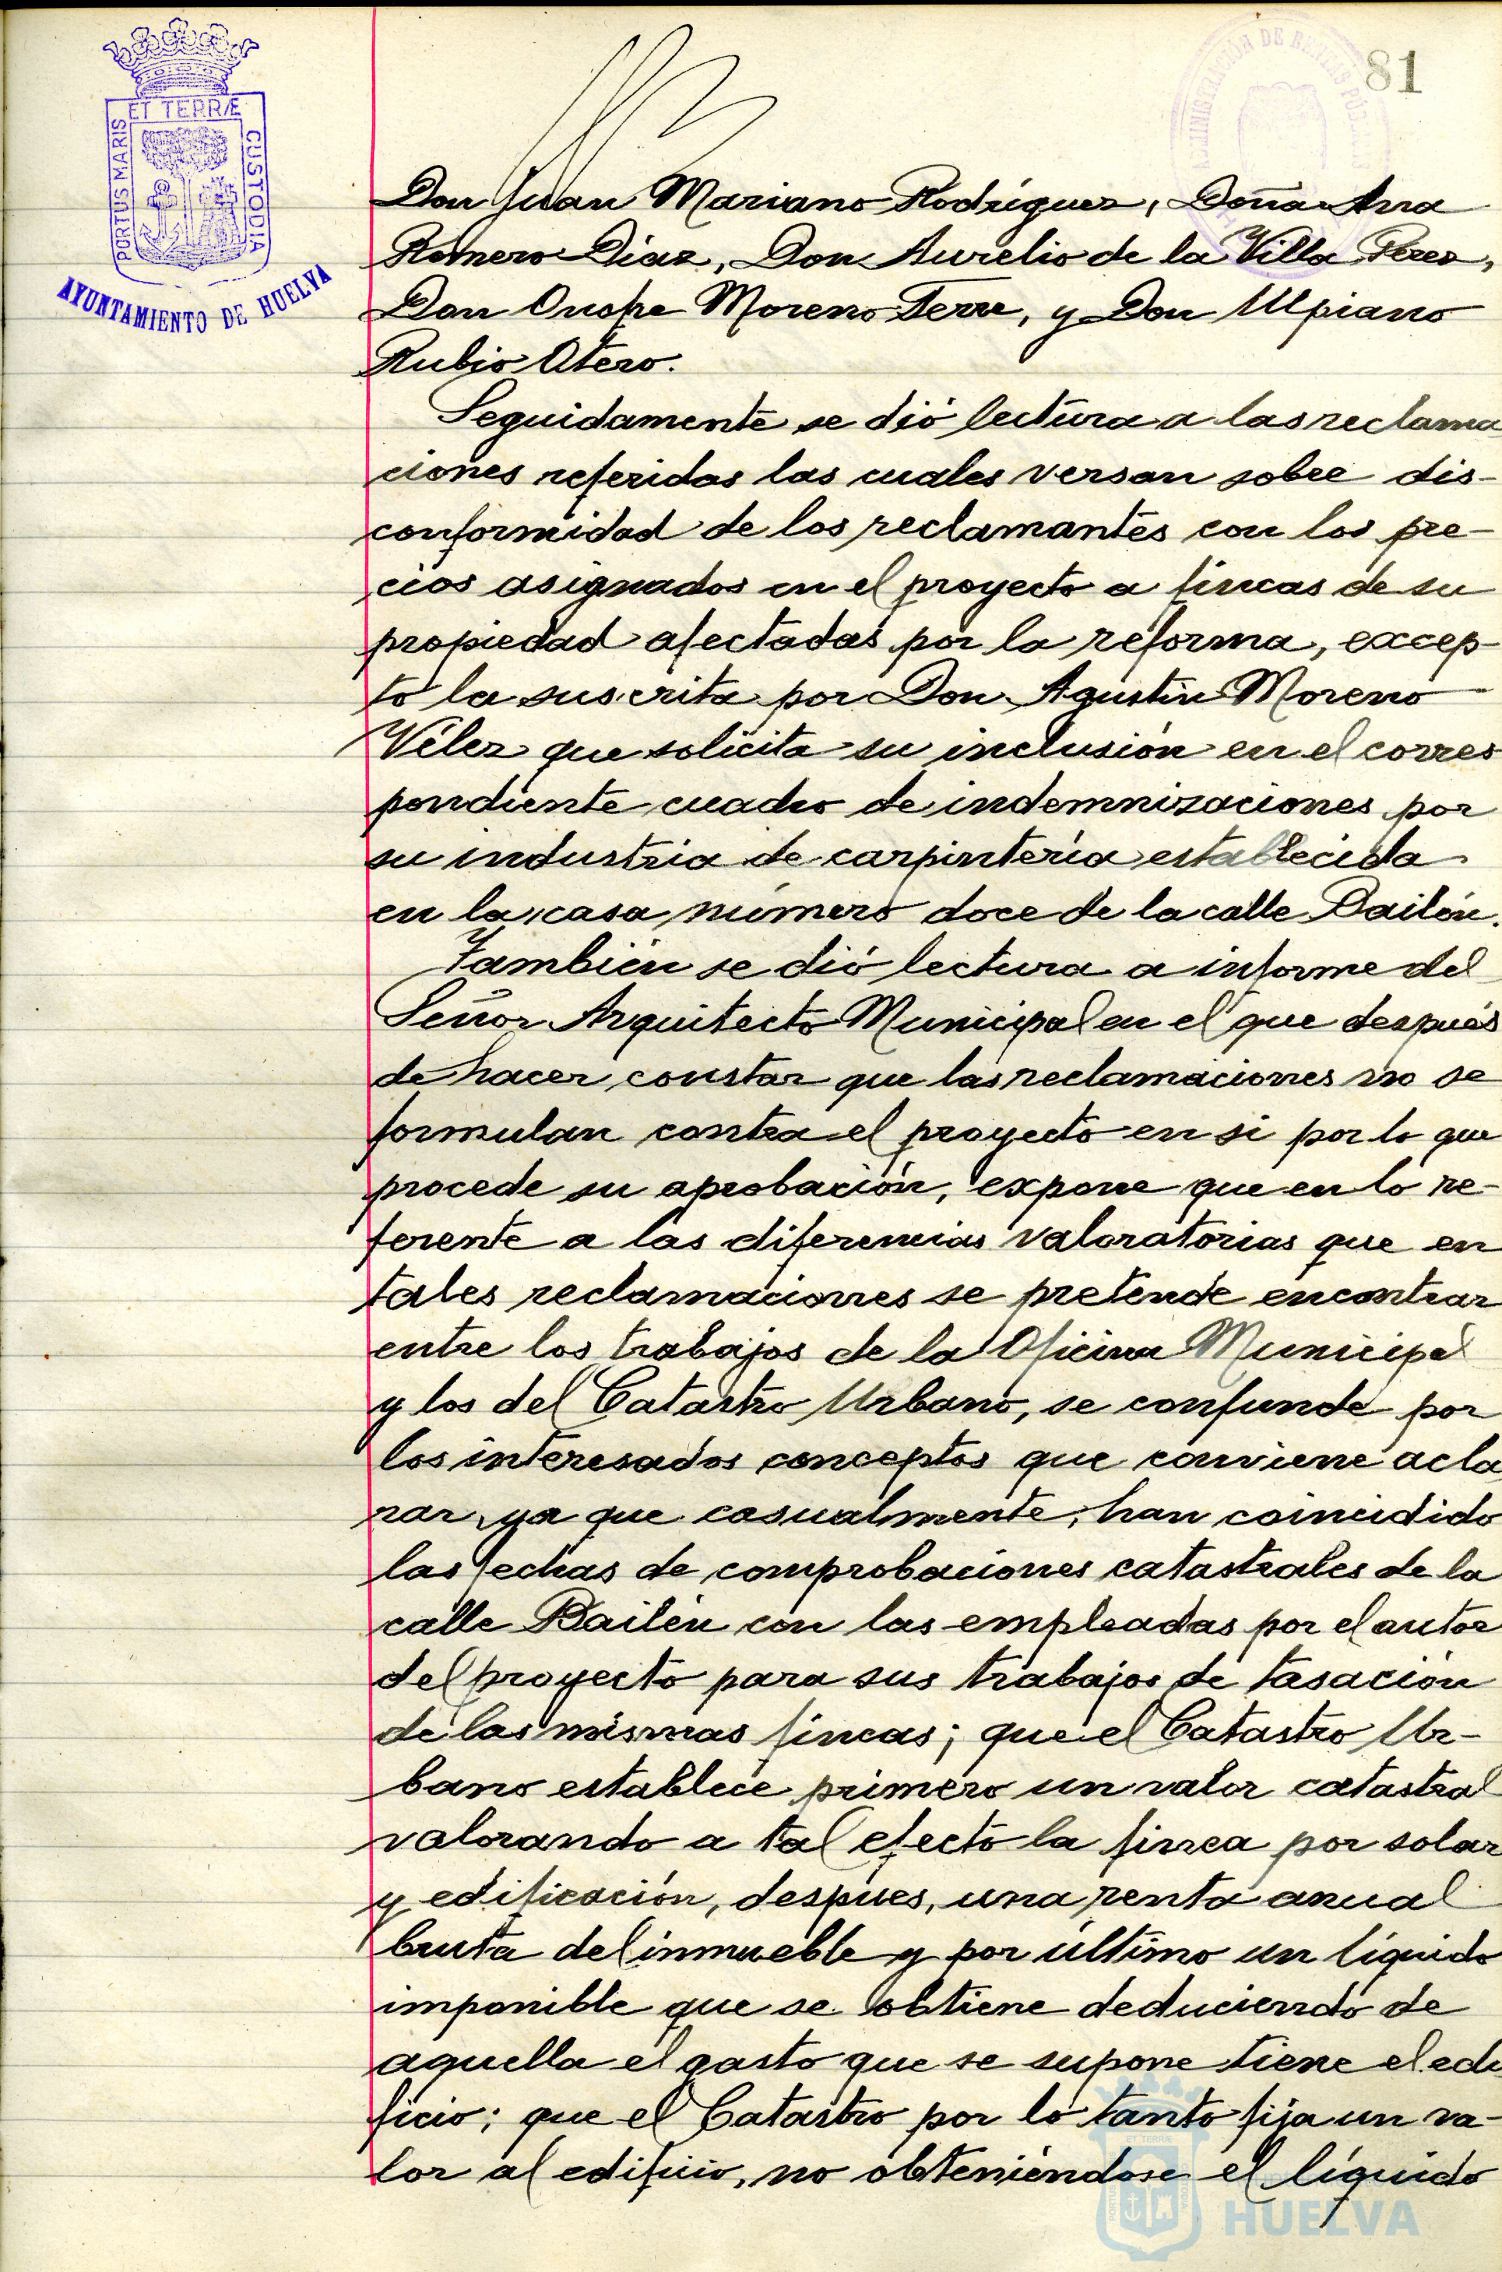 81
ET TERRÆ
PORTUS MARIS
CUSTODIA
AYUNTAMIENTO DE HUELVA
ADMINISTRACIÓN DE RENTAS PUB
Don Juan Mariano Rodríguez, Doña Ana
Romero Díaz, Don Aurelio de la Villa Perez,
Don Onofre Moreno Terre, y Don Ulpiano
Rubio Otero.
Seguidamente se dió lectura a las reclama
ciones referidas las cuales versan sobre dis-
conformidad de los reclamantes con los pre-
cios asignados en el proyecto a fincas de su
propiedad afectadas por la reforma, excep-
to la suscrita por Don Agustín Moreno
Vélez que solicita su inclusión en el corres
pondiente cuadro de indemnizaciones por
su industria de carpintería establecida
en la casa número doce de la calle Bailén.
También se dió lectura a informe del
Señor Arquitecto Municipal en el que después
de hacer constar que las reclamaciones no se
formulan contra el proyecto en si por lo que
procede su aprobación, expone que en lo re-
ferente a las diferencias valoratorias que en
tales reclamaciones se pretende encontrar
entre los trabajos de la Oficina Municipal
y los del Catastro Urbano, se confunde por
los interesados conceptos que conviene acla
rar, ya que casualmente, han coincidido
las fechas de comprobaciones catastrales de la
calle Bailén con las empleadas por el autor
del proyecto para sus trabajos de tasación
de las mismas fincas; que el Catastro Ur-
bano establece primero un valor catastral
valorando a tal efecto la finca por solar
y edificación, después, una renta anual
bruta del inmueble y por último un líquido
imponible que se obtiene deduciendo de
aquella el gasto que se supone tiene el edi
ficio; que el Catastro por lo tanto fija un va-
lor al edificio, no obteniéndose el líquido
HUELVA